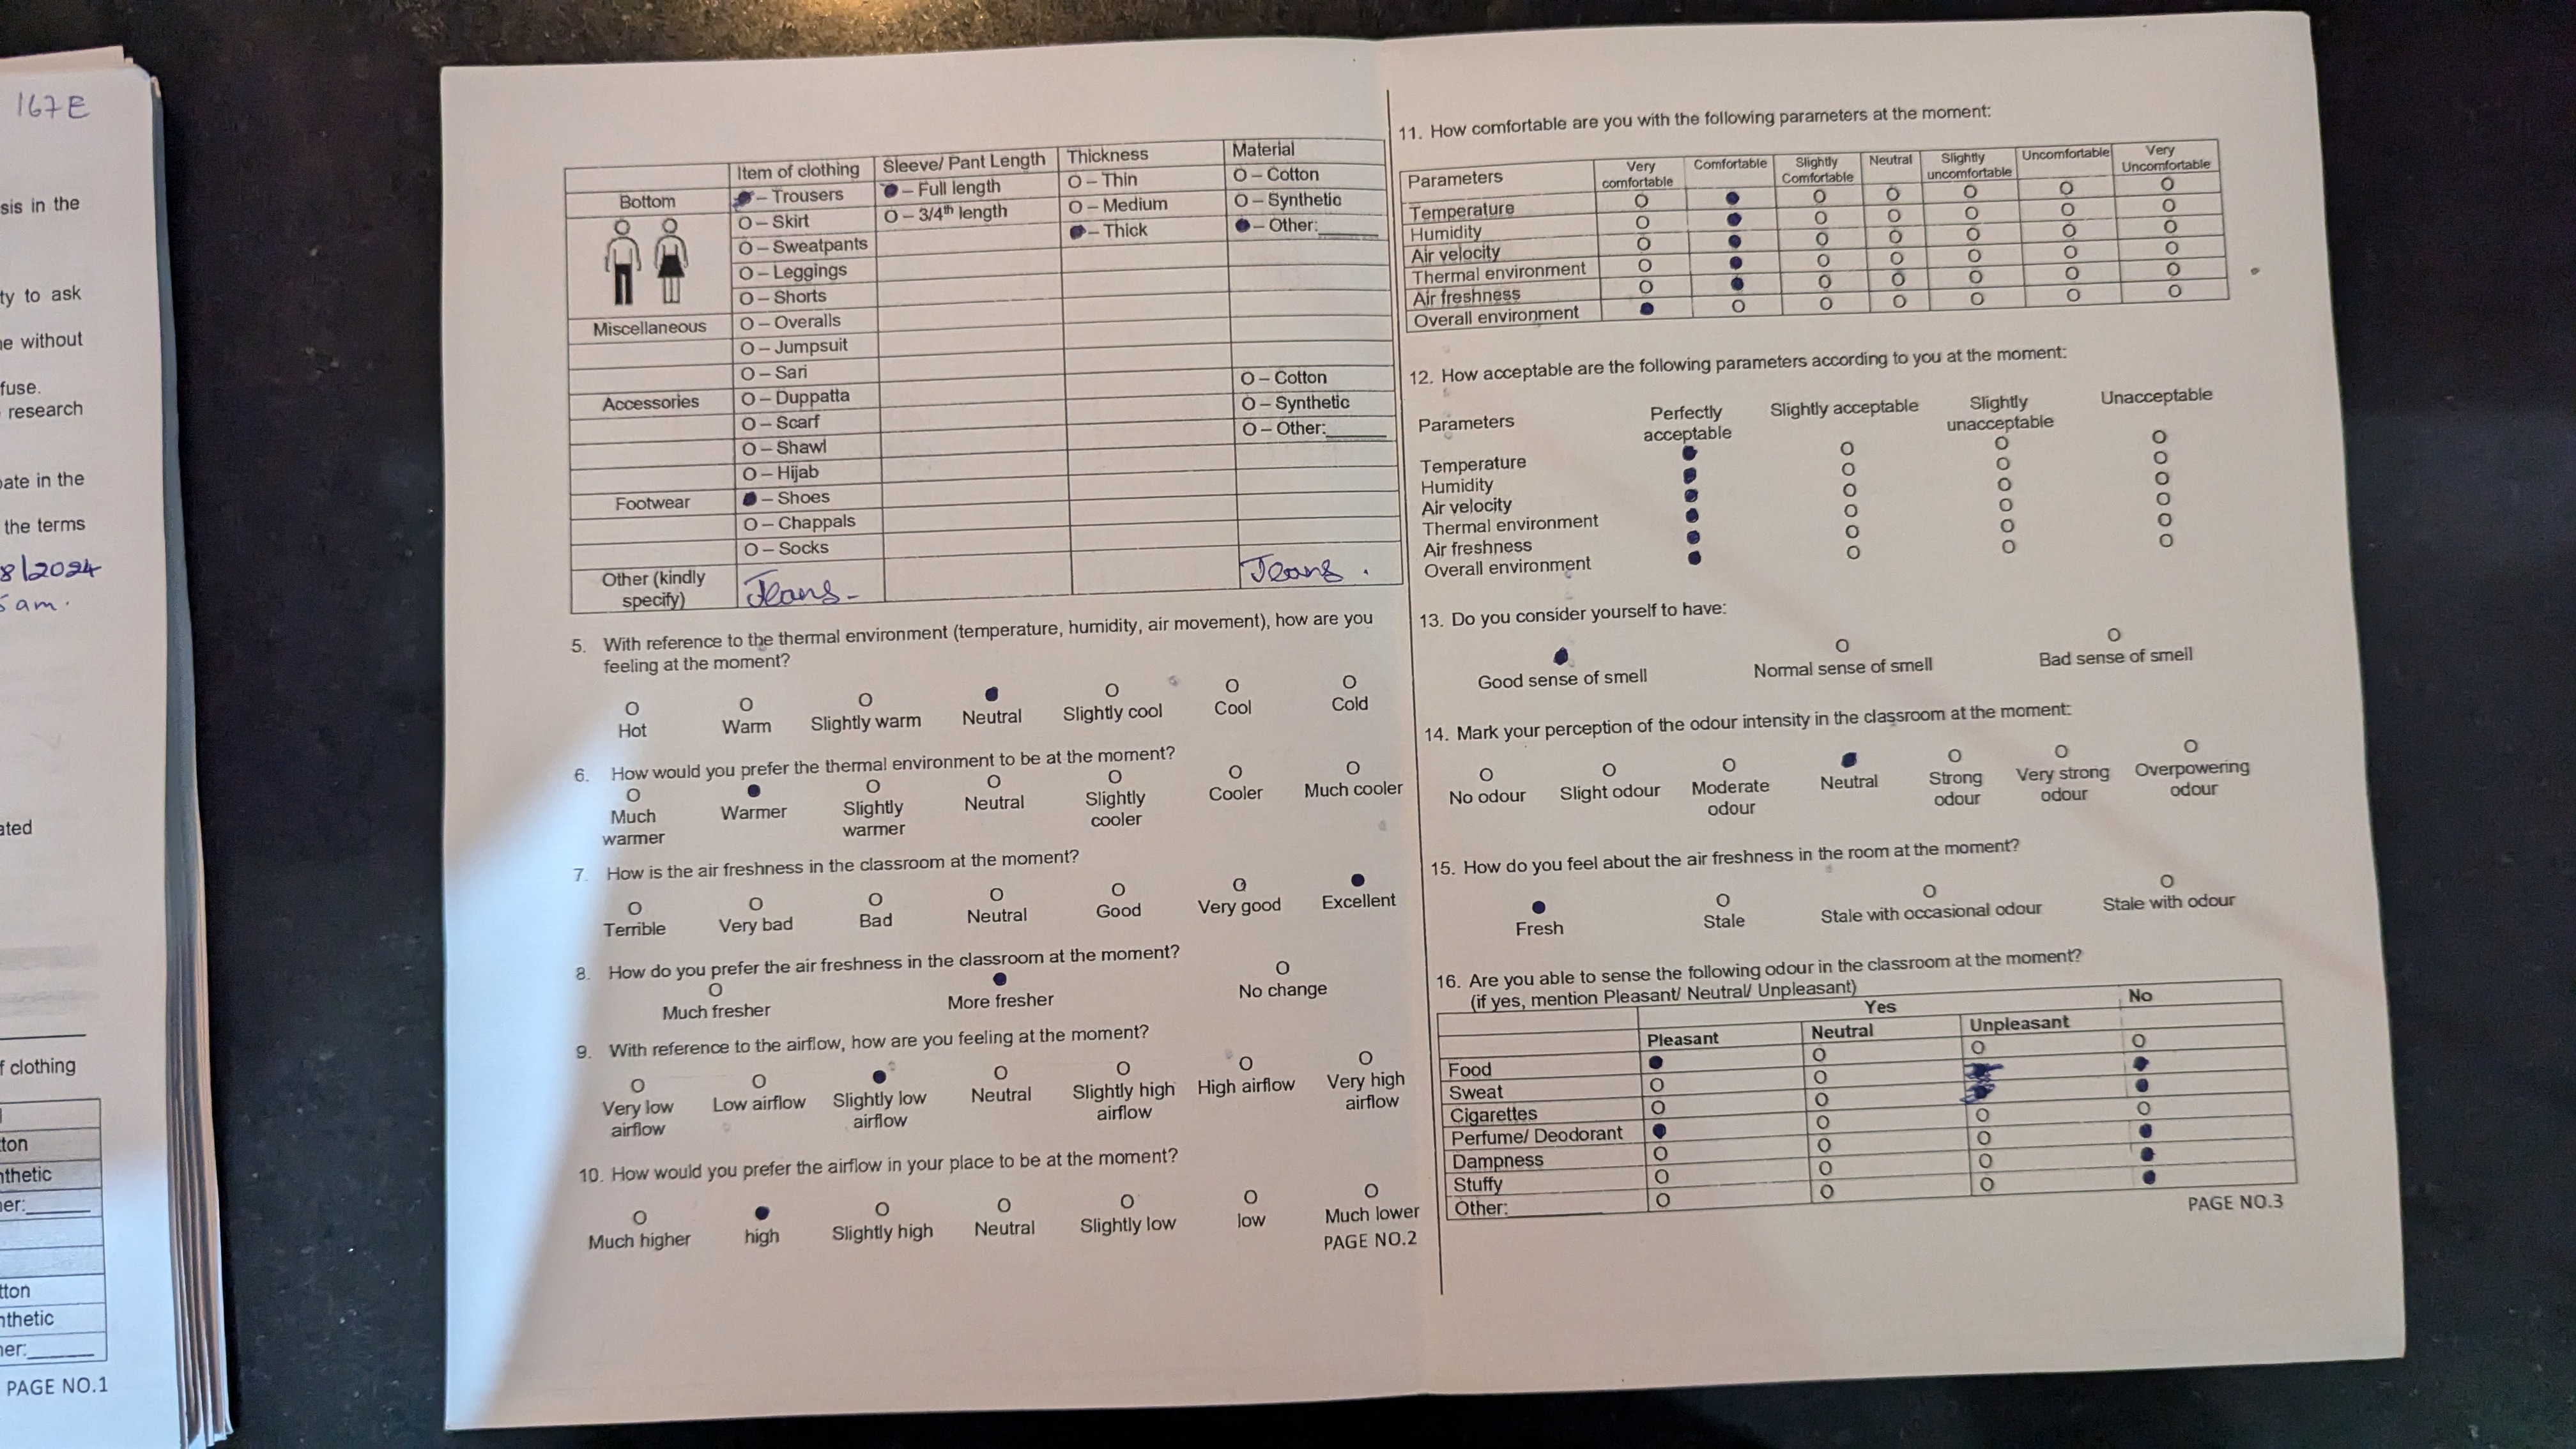 167E
sis in the
ty to ask
e without
fuse.
research
ate in the
the terms
8/2024
5 am.
ated
f clothing
ton
nthetic
er:______
tton
nthetic
er:______
PAGE NO.1
Item of clothing Sleeve/ Pant Length Thickness Material
Bottom – Trousers – Full length O – Thin O – Cotton
O – Skirt O – 3/4th length O – Medium O – Synthetic
O – Sweatpants – Thick – Other:______
O – Leggings
O – Shorts
Miscellaneous O – Overalls
O – Jumpsuit
O – Sari O – Cotton
Accessories O – Duppatta O – Synthetic
O – Scarf O – Other:______
O – Shawl
O – Hijab
Footwear – Shoes
O – Chappals
O – Socks
Other (kindly specify) Jeans – Jeans .
5. With reference to the thermal environment (temperature, humidity, air movement), how are you
feeling at the moment?
Hot Warm Slightly warm Neutral Slightly cool Cool Cold
6. How would you prefer the thermal environment to be at the moment?
Much warmer Warmer Slightly warmer Neutral Slightly cooler Cooler Much cooler
7. How is the air freshness in the classroom at the moment?
Terrible Very bad Bad Neutral Good Very good Excellent
8. How do you prefer the air freshness in the classroom at the moment?
Much fresher More fresher No change
9. With reference to the airflow, how are you feeling at the moment?
Very low airflow Low airflow Slightly low airflow Neutral Slightly high airflow High airflow Very high airflow
10. How would you prefer the airflow in your place to be at the moment?
Much higher high Slightly high Neutral Slightly low low Much lower
PAGE NO.2
11. How comfortable are you with the following parameters at the moment:
Parameters Very comfortable Comfortable Slightly Comfortable Neutral Slightly uncomfortable Uncomfortable Very Uncomfortable
Temperature
Humidity
Air velocity
Thermal environment
Air freshness
Overall environment
12. How acceptable are the following parameters according to you at the moment:
Parameters Perfectly acceptable Slightly acceptable Slightly unacceptable Unacceptable
Temperature
Humidity
Air velocity
Thermal environment
Air freshness
Overall environment
13. Do you consider yourself to have:
Good sense of smell Normal sense of smell Bad sense of smell
14. Mark your perception of the odour intensity in the classroom at the moment:
No odour Slight odour Moderate odour Neutral Strong odour Very strong odour Overpowering odour
15. How do you feel about the air freshness in the room at the moment?
Fresh Stale Stale with occasional odour Stale with odour
16. Are you able to sense the following odour in the classroom at the moment?
(if yes, mention Pleasant/ Neutral/ Unpleasant)
Yes No
Pleasant Neutral Unpleasant
Food
Sweat
Cigarettes
Perfume/ Deodorant
Dampness
Stuffy
Other:__________
PAGE NO.3